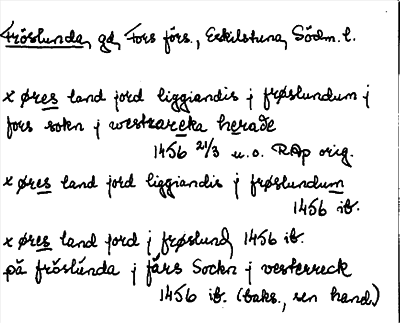 Fröslunda, gd, Fors förs., Eskilstuna, Södm. l.
x øres land jord liggiandis j frøslundum j
fors sokn j westrareka herade
1456 21/3 u.o. RAp orig.
x øres land jord liggiandis j frøslundum
1456 ib.
x øres land jord j frøslund, 1456 ib.
på fröslúnda j fårs Sockn j vesterreck
1456 ib. (baks., sen hand.)